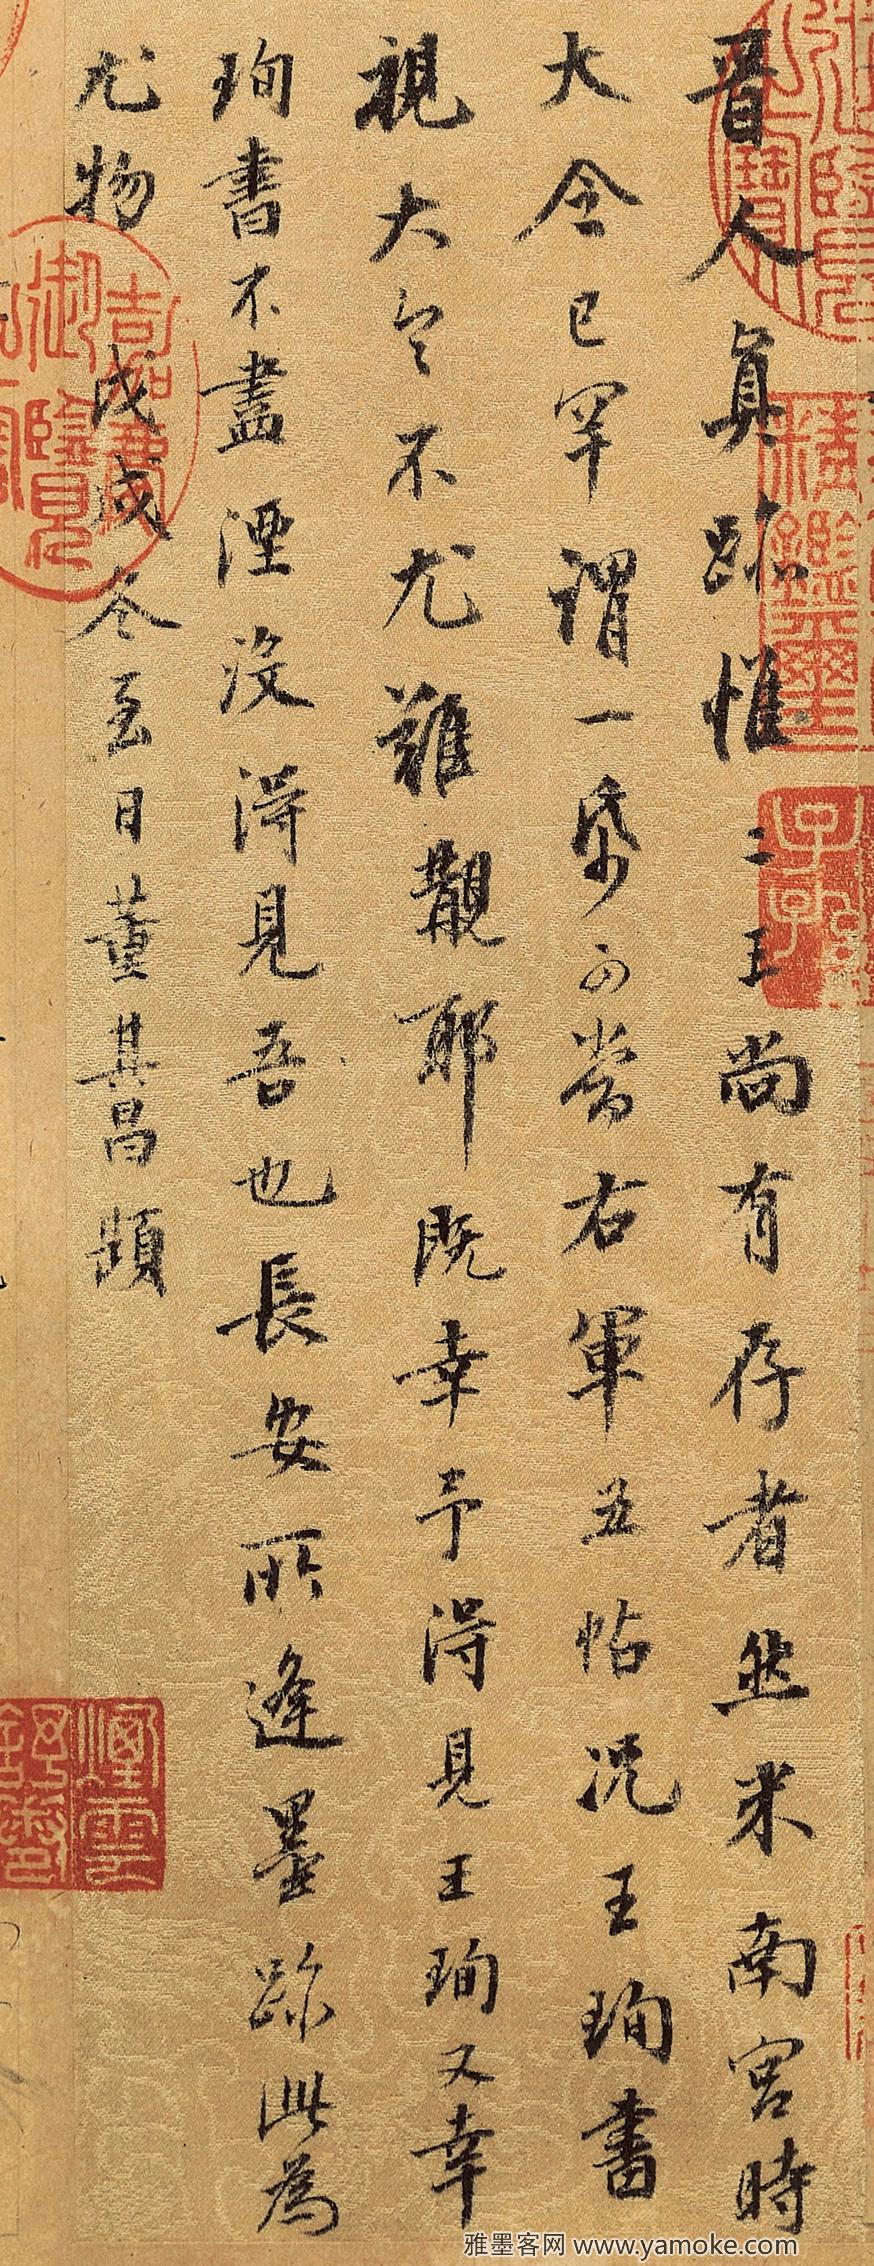 晉人真跡惟二王尚有存者然米南宮時
大令已罕謂一帋可當右軍五帖況王珣書
視大令不尤難覯耶既幸予得見王珣又幸
珣書不盡湮没得見吾也長安所逢墨跡此為
尤物 戊戌冬至日董其昌題
嘉慶御覽
精鑑璽
子孫
煙雲
雅墨客网 www.yamoke.com